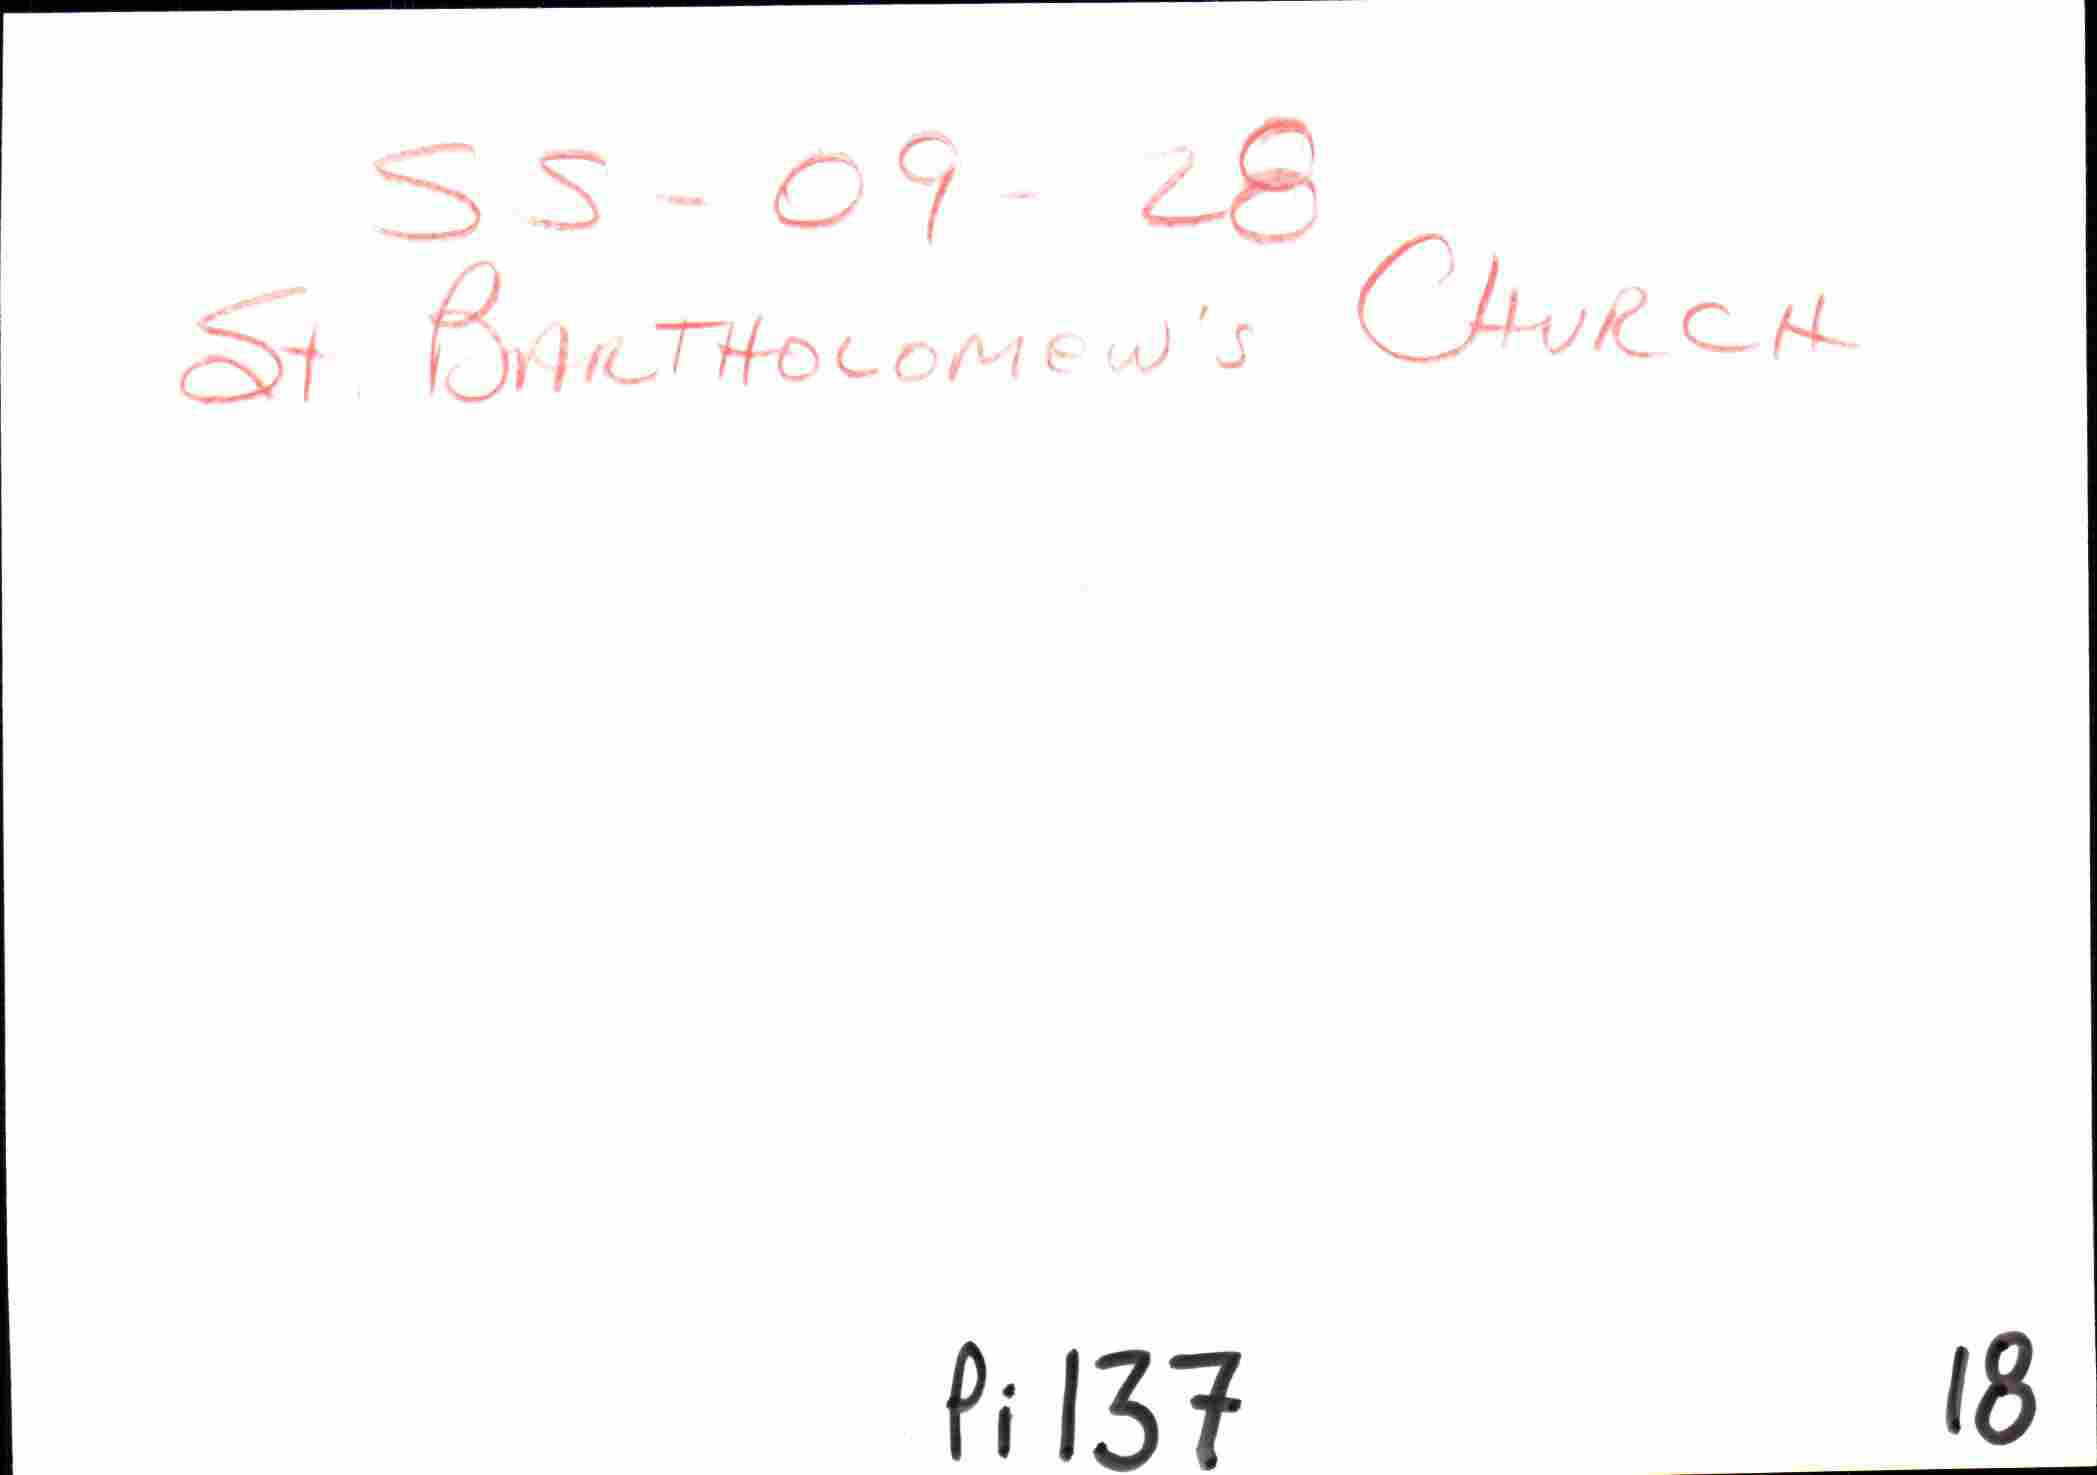 55-09-28
St. BARTHOLOMEW'S CHURCH
Pi 137
18